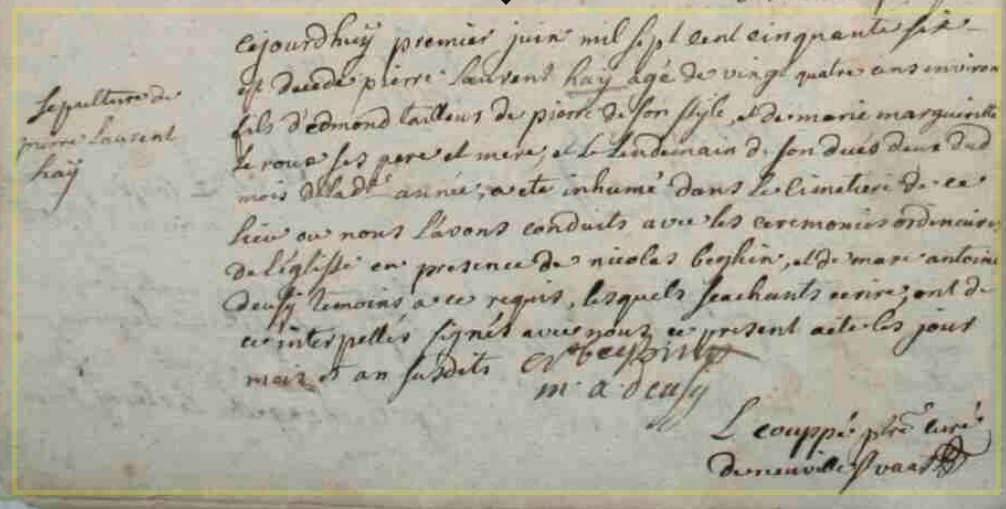 Sepulture de
pierre Laurent
haÿ
cejourdhuÿ premier juin mil sept cent cinquante six
est decede pierre laurent haÿ agé de vingt quatre ans environ
fils d'edmond tailleur de pierre de son stÿle, et de marie marguerite
le roux ses pere et mere, et le lendemain de son deces deux dud
mois de lad.te année, a eté inhumé dans le cimetiere de ce
lieu ou nous l'avons conduits avec les ceremonies ordinaires
de l'églisse en presence de nicolas beghin, et de marc antoine
deusÿ temoins a ce requis, lesquels scachants ecrire, ont de
ce interpellés signés avec nous ce present acte les jour
mois et an susdits
m. a. deusy
L couppé ptre curé
de neuville St vaast